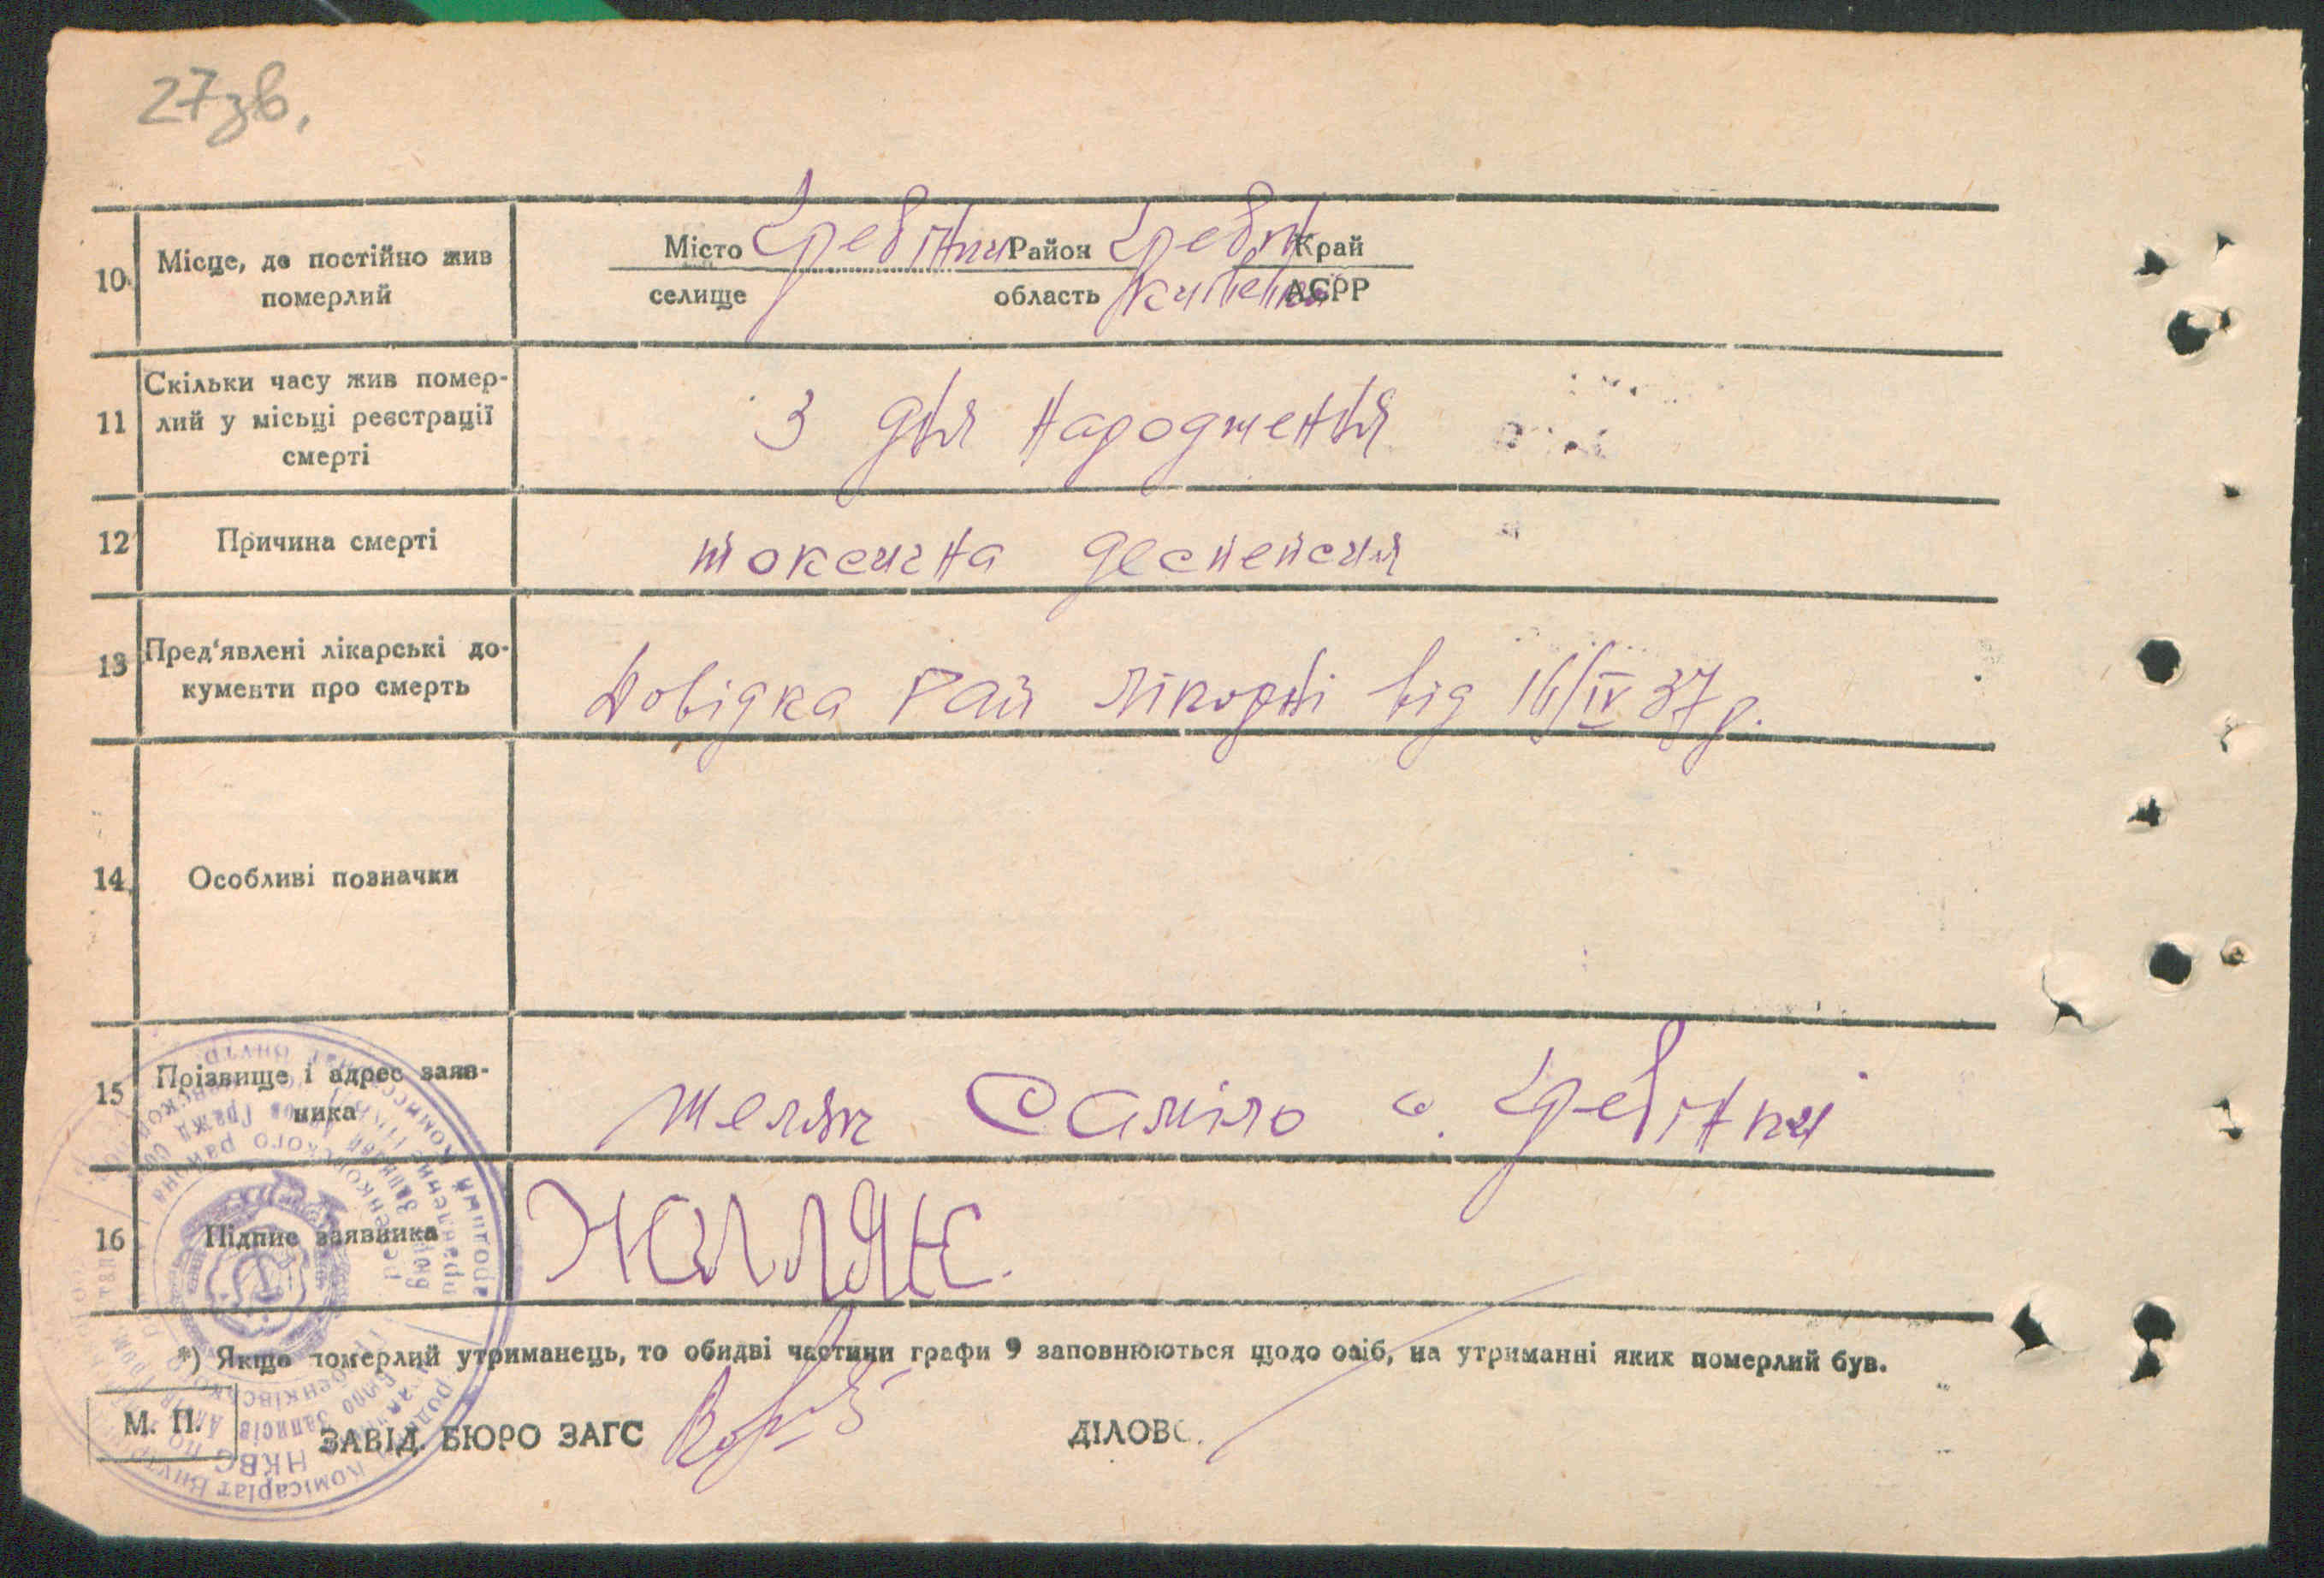 27зв.
10. Місце, де постійно жив померлий
Місто Гребінки Район Гребін Край
селище область Київська АСРР
11 Скільки часу жив помер-
лий у місьці реєстрації
смерті
З дня народження
12 Причина смерті
токсична деспепсия
13 Пред'явлені лікарські до-
кументи про смерть
Довідка Рай лікорні від 16/IV 37 р.
14. Особливі позначки
15 Прізвище і адрес заяв-
ника
Желяк Саміло с. Гребінки
16 Підпис заявника
Желяк.
*) Якщо померлий утриманець, то обидві частини графи 9 заповнюються щодо осіб, на утриманні яких померлий був.
М. П.
ЗАВІД. БЮРО ЗАГС
ДІЛОВС.